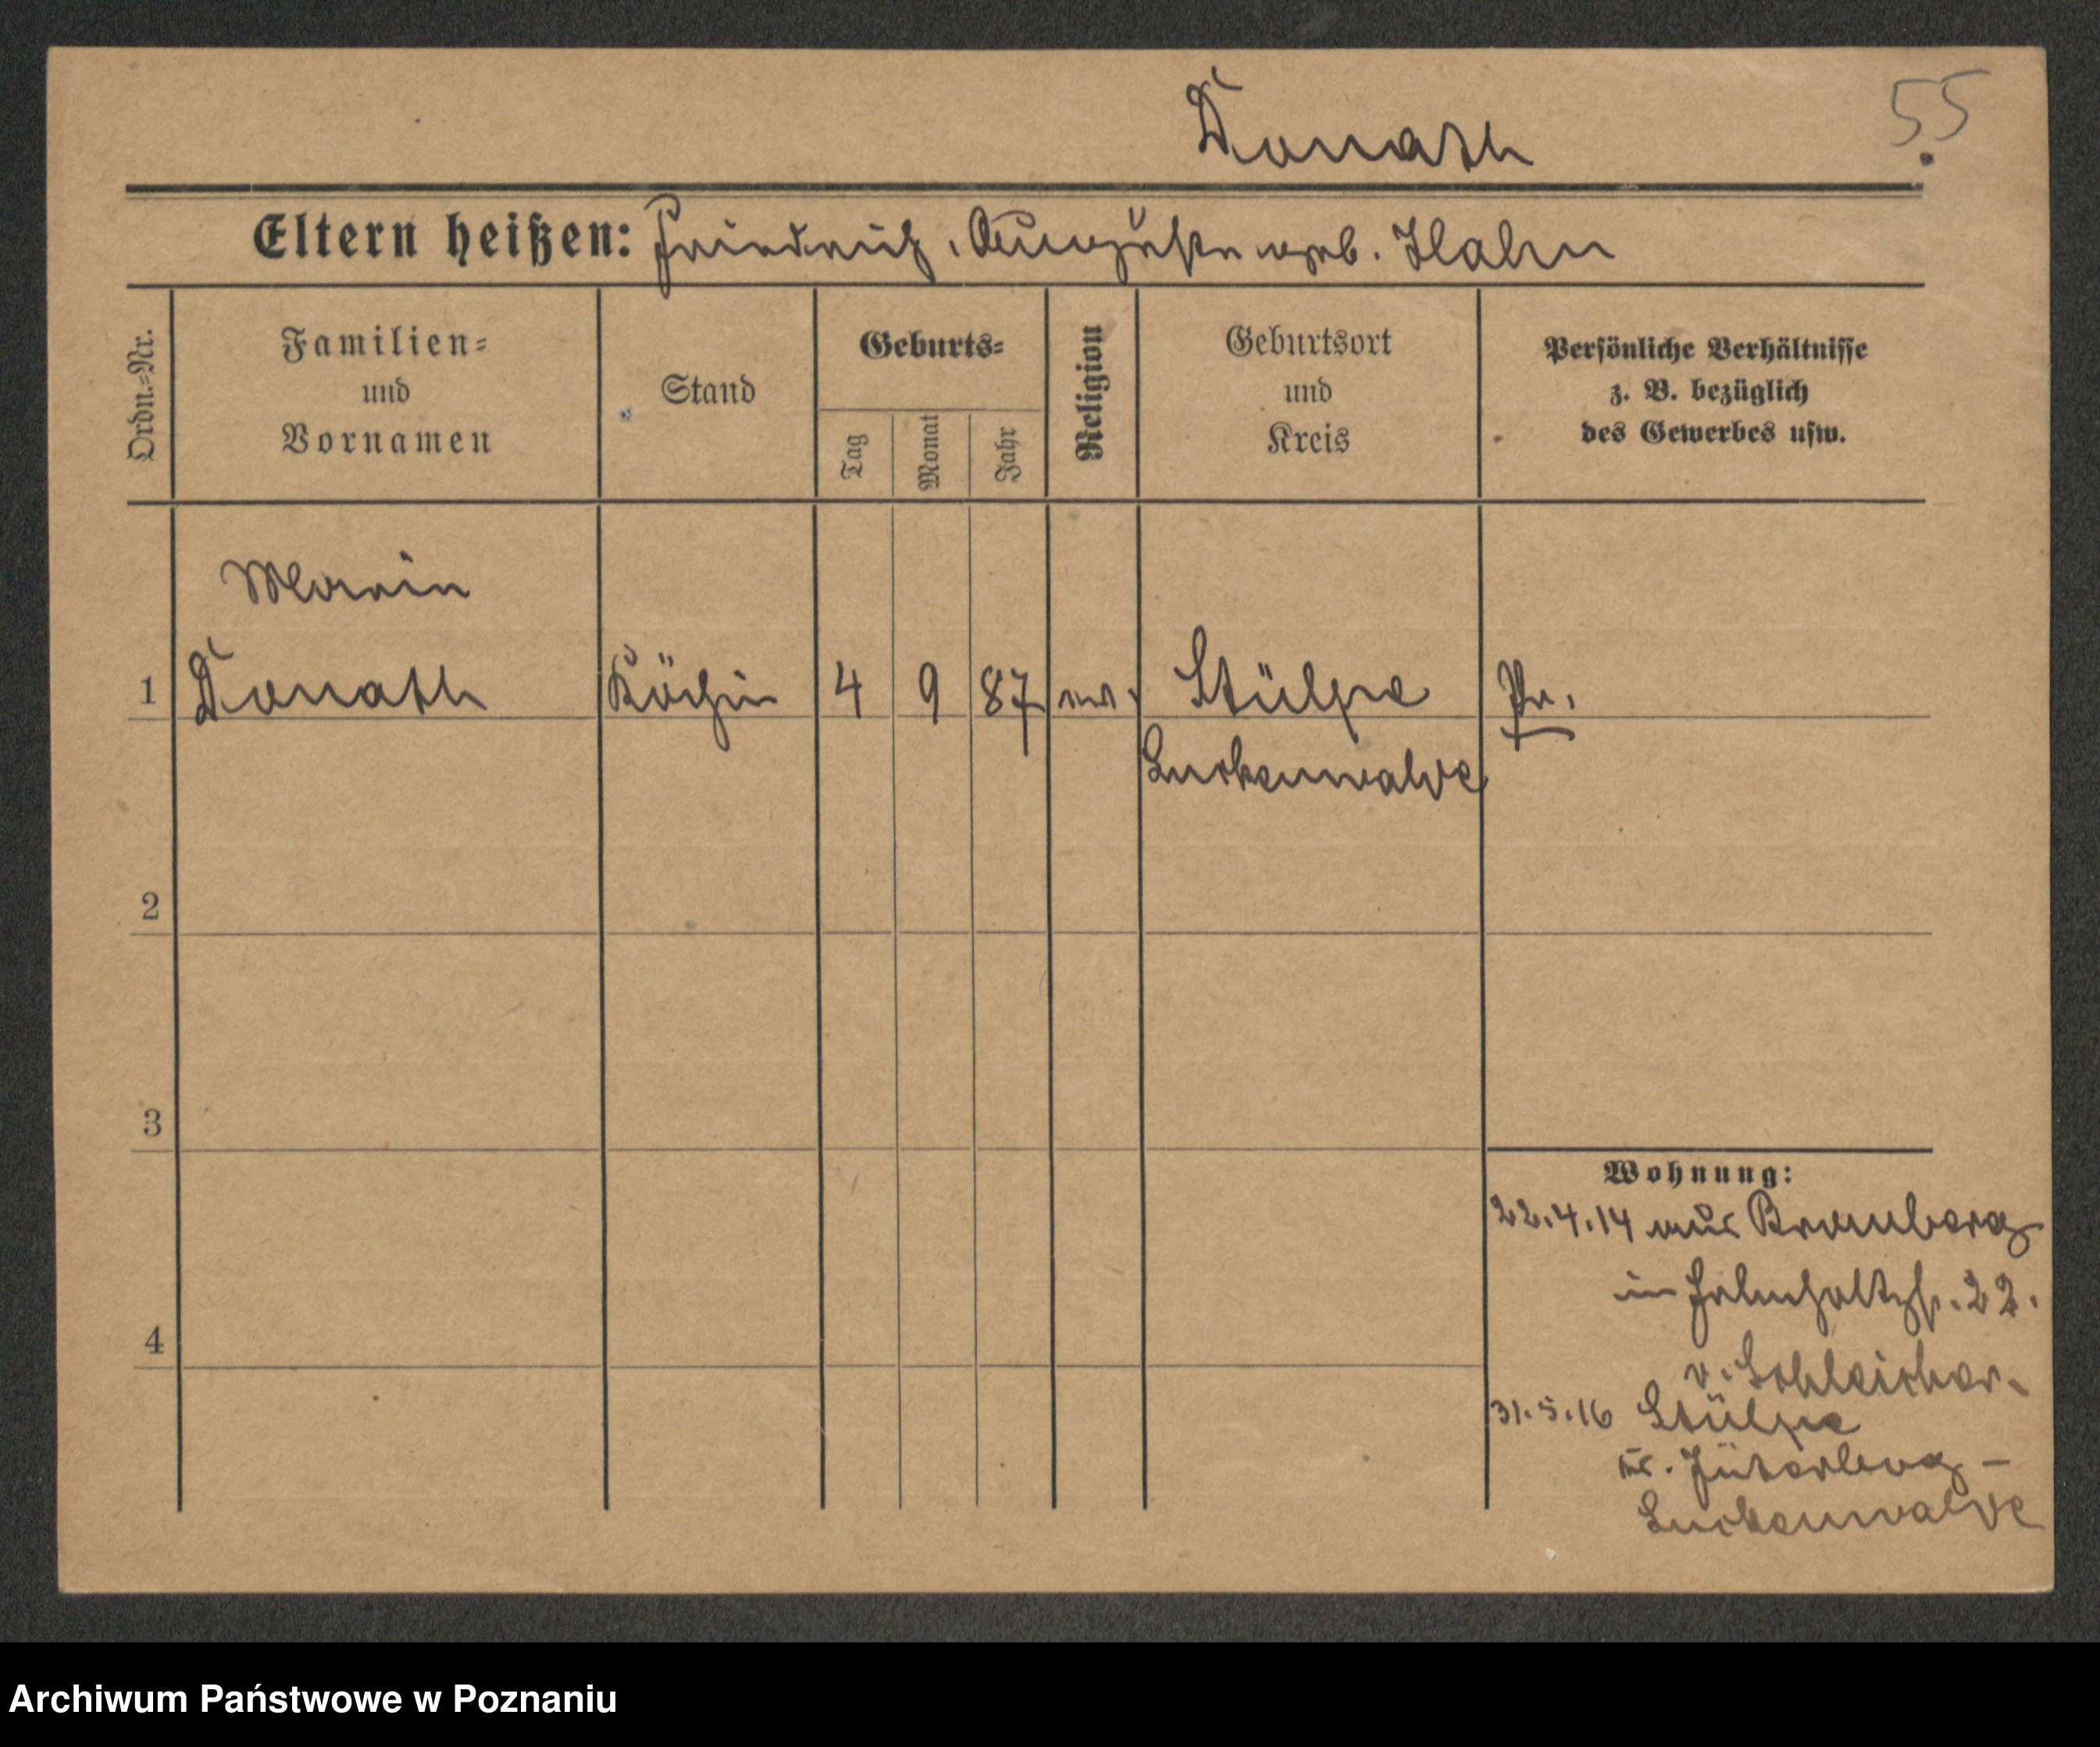 Donath
55
Eltern heißen: Friedrich, Auguste geb. Hahn
Ordn.-Nr.
Familien-
und
Vornamen
Stand
Geburts-
Tag
Monat
Jahr
Religion
Geburtsort
und
Kreis
Persönliche Verhältnisse
z. B. bezüglich
des Gewerbes usw.
Marie
1 Donath Köchin 4 9 87 ev. Stülpe Pr.
Luckenwalde
2
3
4
Wohnung:
22.4.14 aus Bromberg
in 22.
v. Schleicher.
31.5.16 Stülpe
Kr. Jüterbog -
Luckenwalde
Archiwum Państwowe w Poznaniu